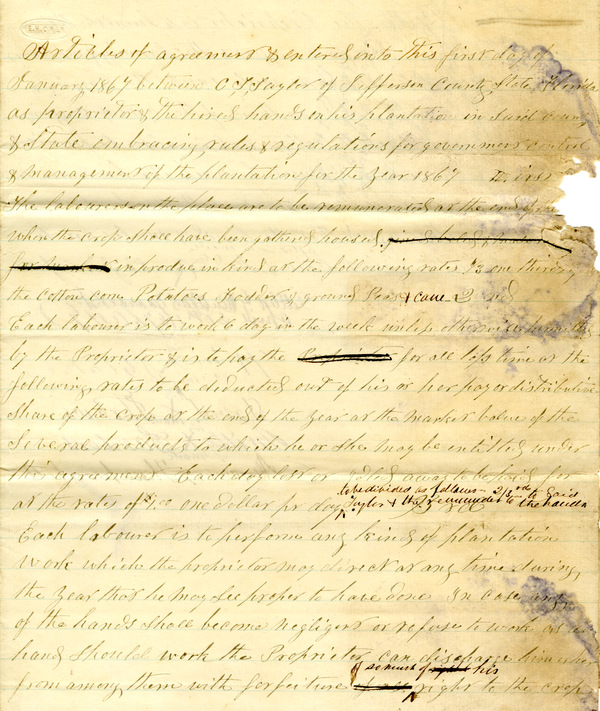 Articles of agreement & entered into this first day of
January 1867 between O T Taylor of Jefferson County State Florida
as proprietor & the hired hands on his plantation in said County
& State embracing rules & regulations for government control
& management of the plantation for the year 1867 First
The labourers on the place are to be remunerated at the end
when the crop shall have been gathered housed
in produce in kind at the following rates 1/3 one third of
the cotton corn Potatoes Fodder & ground Peas & cane 2nd
Each labourer is to work 6 day in the week unless otherwise
by the Proprietor & is to pay the for all loss time at the
following rates to be deducted out of his or her pay or distributive
share of the crop at the end of the year at the market value of the
Several products to which he or she may be entitled under
this agreement Each day lost or away to be paid for
to be divided as follows - 2/3rds to said
at the rates of $1.00 one dollar pr day Taylor & the remainder to the hands
Each labourer is to perform any kind of plantation
work which the proprietor may direct at any time during
the year that he may see proper to have done In case any
of the hands shall become negligent or refuse to work as a
hand should work the Proprietor can discharge him or her
of so much of his
from among them with forfeiture right to the crop